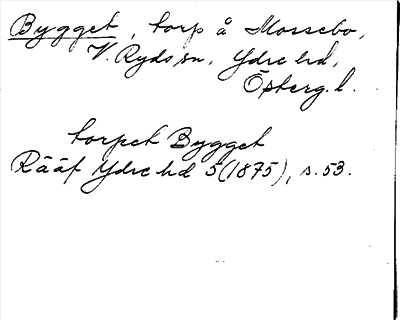 Bygget, torp å Mossebo,
V. Ryds sn, Ydre hd,
Österg. l.
torpet Bygget
Rääf Ydre hd 5(1875), s. 53.